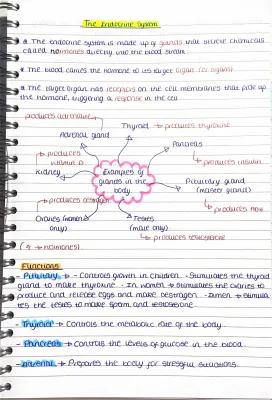 The Endocrine System
* The endocrine system is made up of glands that secrete chemicals
called hormones directly into the blood stream.
* The blood carries the hormone to its target organ (or organs)
* The target organ has receptors on the cell membranes that pick up
the hormone, triggering a response in the cell
produces adrenaline
Adrenal gland
Thyroid → produces thyroxine
Pancreas
↳ produces insulin
↳ produces
vitamin D
Kidney
Examples of
glands in the
body.
Pituitary gland
(master gland)
↳ produces
produces oestrogen
Ovaries (women
only)
Testes
(male only)
↳ produces testosterone
(→ hormones)
Functions
- Pituitary → - Controls growth in children - Stimulates the thyroid
gland to make thyroxine - In women → stimulates the ovaries to
produce and release eggs and make oestrogen - In men → stimula
tes the testes to make sperm and testosterone.
- Thyroid → Controls the metabolic rate of the body.
- Pancreas → Controls the levels of glucose in the blood.
- Adrenal → Prepares the body for stressful situations.